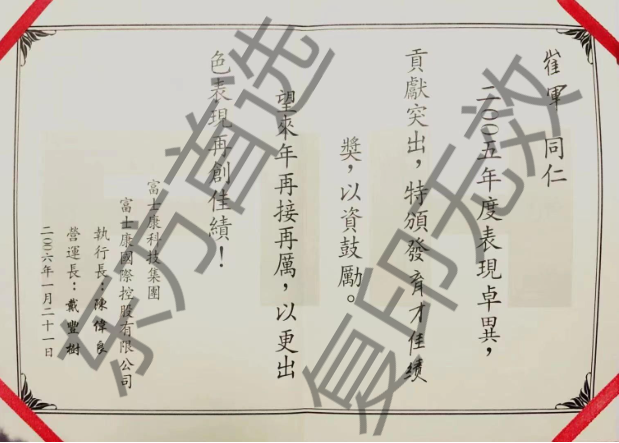 崔軍 同仁
二〇〇五年度表現卓異，
貢獻突出，特頒發育才佳績
獎，以資鼓勵。
望來年再接再厲，以更出
色表現再創佳績！
富士康科技集團
富士康國際控股有限公司
執行長：陳偉良
營運長：戴豐樹
二〇〇六年一月二十一日
东方首选
复印无效